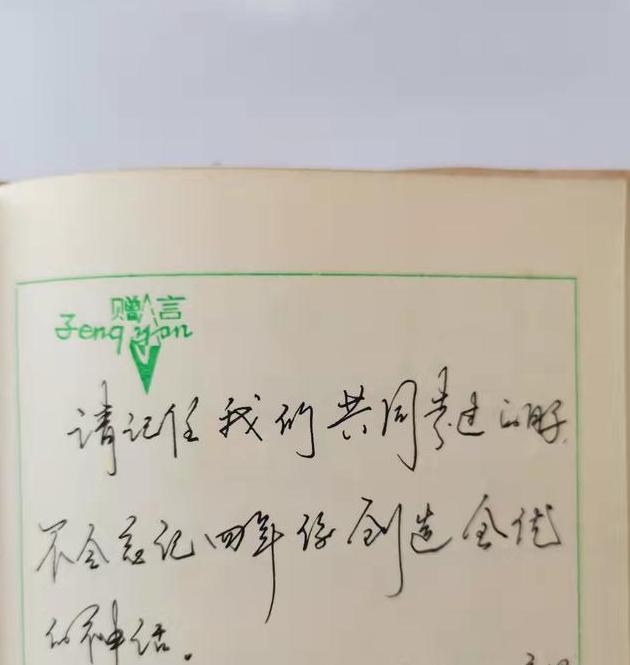 赠言
Zeng yan
请记住我们共同过的日子
不会忘记四年创造全优
的神话。